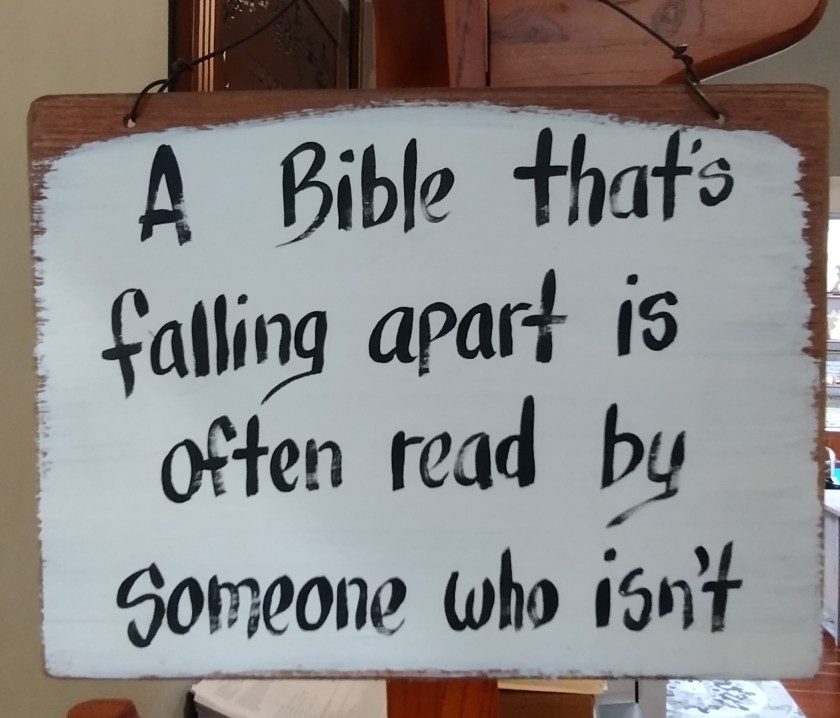 A Bible that's
falling apart is
often read by
someone who isn't